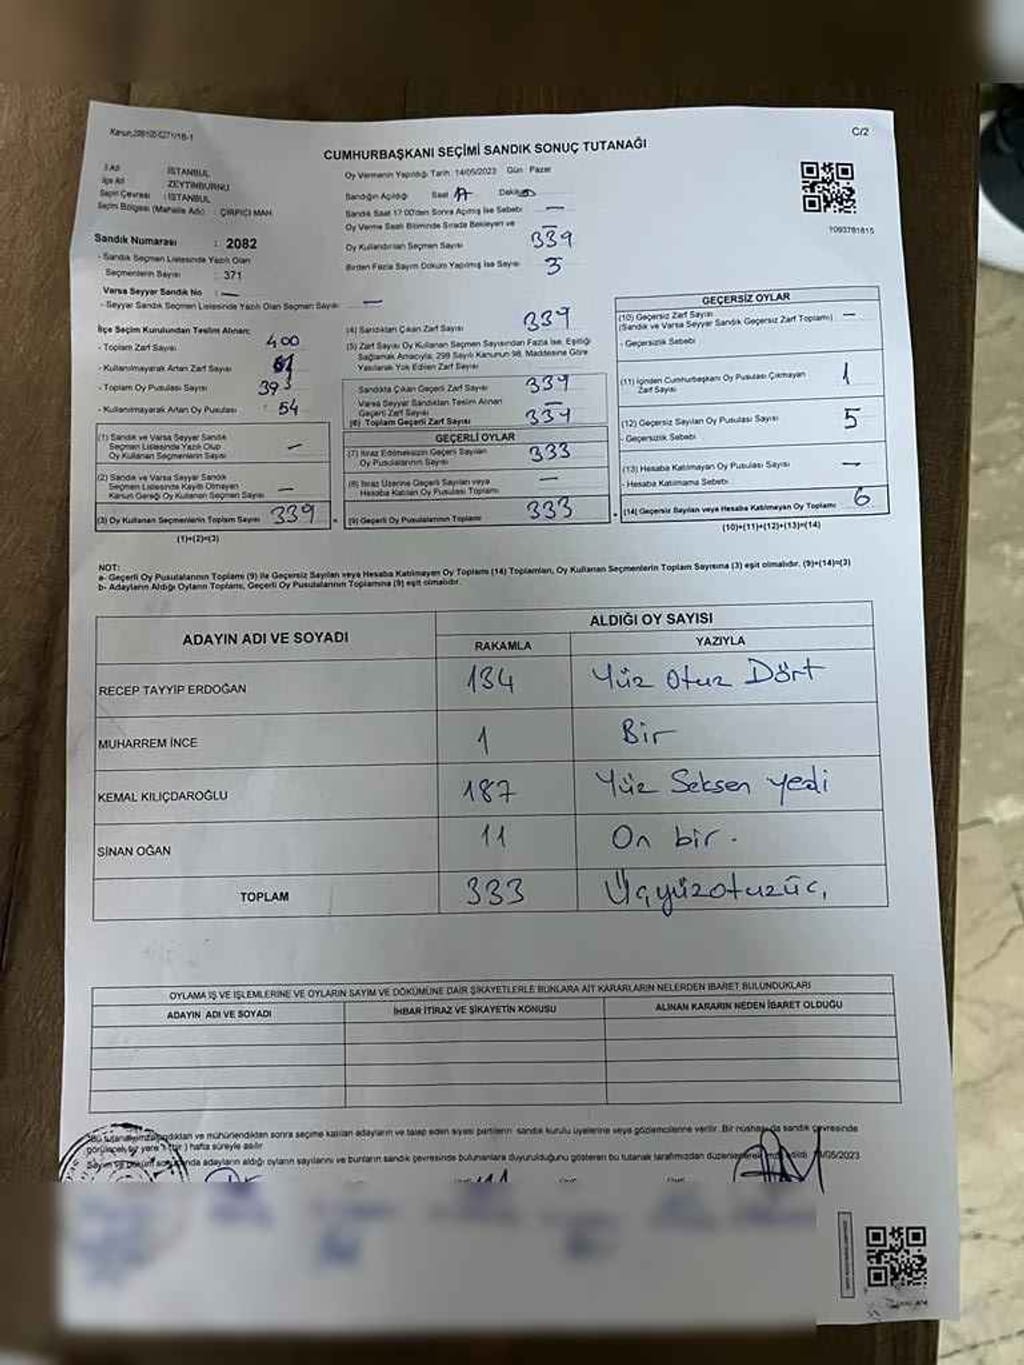 C/2
CUMHURBAŞKANI SEÇİMİ SANDIK SONUÇ TUTANAĞI
İl Adı : İSTANBUL
İlçe Adı : ZEYTİNBURNU
Seçim Çevresi : İSTANBUL
Seçim Bölgesi (Mahalle Adı) : ÇIRPICI MAH.
Sandık Numarası : 2082
- Sandık Seçmen Listesinde Yazılı Olan
Seçmenlerin Sayısı : 371
Varsa Seyyar Sandık No : —
- Seyyar Sandık Seçmen Listesinde Yazılı Olan Seçmen Sayısı —
Oy Vermenin Yapıldığı Tarih: 14/05/2023 Gün : Pazar
Sandığın Açıldığı Saat Dakika
Sandık Saat 17:00'den Sonra Açılmış İse Sebebi —
Oy Verme Saati Bitiminde Sırada Bekleyen ve —
Oy Kullandırılan Seçmen Sayısı 339
Birden Fazla Sayım Döküm Yapılmış İse Sayısı 3
1093781615
İlçe Seçim Kurulundan Teslim Alınan:
- Toplam Zarf Sayısı 400
- Kullanılmayarak Artan Zarf Sayısı 61
- Toplam Oy Pusulası Sayısı 393
- Kullanılmayarak Artan Oy Pusulası : 54
(1) Sandık ve Varsa Seyyar Sandık
Seçmen Listesinde Yazılı Olup
Oy Kullanan Seçmenlerin Sayısı —
(2) Sandık ve Varsa Seyyar Sandık
Seçmen Listesinde Kayıtlı Olmayan
Kanun Gereği Oy Kullanan Seçmen Sayısı —
(3) Oy Kullanan Seçmenlerin Toplam Sayısı 339
(1)+(2)=(3)
(4) Sandıktan Çıkan Zarf Sayısı 339
(5) Zarf Sayısı Oy Kullanan Seçmen Sayısından Fazla İse, Eşitliği
Sağlamak Amacıyla; 298 Sayılı Kanunun 98. Maddesine Göre
Yakılarak Yok Edilen Zarf Sayısı
Sandıkta Çıkan Geçerli Zarf Sayısı 339
Varsa Seyyar Sandıktan Teslim Alınan
Geçerli Zarf Sayısı —
(6) Toplam Geçerli Zarf Sayısı 339
GEÇERLİ OYLAR
(7) İtiraz Edilmeksizin Geçerli Sayılan
Oy Pusulalarının Sayısı 333
(8) İtiraz Üzerine Geçerli Sayılan veya
Hesaba Katılan Oy Pusulası Toplamı —
(9) Geçerli Oy Pusulalarının Toplamı 333
GEÇERSİZ OYLAR
(10) Geçersiz Zarf Sayısı —
(Sandık ve Varsa Seyyar Sandık Geçersiz Zarf Toplamı)
- Geçersizlik Sebebi
(11) İçinden Cumhurbaşkanı Oy Pusulası Çıkmayan
Zarf Sayısı 1
(12) Geçersiz Sayılan Oy Pusulası Sayısı 5
- Geçersizlik Sebebi
(13) Hesaba Katılmayan Oy Pusulası Sayısı —
- Hesaba Katılmama Sebebi
(14) Geçersiz Sayılan veya Hesaba Katılmayan Oy Toplamı 6
(10)+(11)+(12)+(13)=(14)
NOT:
a- Geçerli Oy Pusulalarının Toplamı (9) ile Geçersiz Sayılan veya Hesaba Katılmayan Oy Toplamı (14) Toplamları, Oy Kullanan Seçmenlerin Toplam Sayısına (3) eşit olmalıdır. (9)+(14)=(3)
b- Adayların Aldığı Oyların Toplamı, Geçerli Oy Pusulalarının Toplamına (9) eşit olmalıdır.
ADAYIN ADI VE SOYADI
ALDIĞI OY SAYISI
RAKAMLA YAZIYLA
RECEP TAYYİP ERDOĞAN 134 Yüz Otuz Dört
MUHARREM İNCE 1 Bir
KEMAL KILIÇDAROĞLU 187 Yüz Seksen yedi
SİNAN OĞAN 11 On bir .
TOPLAM 333 Üçyüzotuzüç,
OYLAMA İŞ VE İŞLEMLERİNE VE OYLARIN SAYIM VE DÖKÜMÜNE DAİR ŞİKAYETLERLE BUNLARA AİT KARARLARIN NELERDEN İBARET BULUNDUKLARI
ADAYIN ADI VE SOYADI İHBAR İTİRAZ VE ŞİKAYETİN KONUSU ALINAN KARARIN NEDEN İBARET OLDUĞU
ve mühürlendikten sonra seçime katılan adayların ve talep eden siyasi partilerin sandık kurulu üyelerine veya gözlemcilerine verilir. Bir nüshası da sandık çevresinde
hafta süreyle asılır.
adayların aldığı oyların sayılarını ve bunların sandık çevresinde bulunanlara duyurulduğunu gösteren bu tutanak tarafımızdan